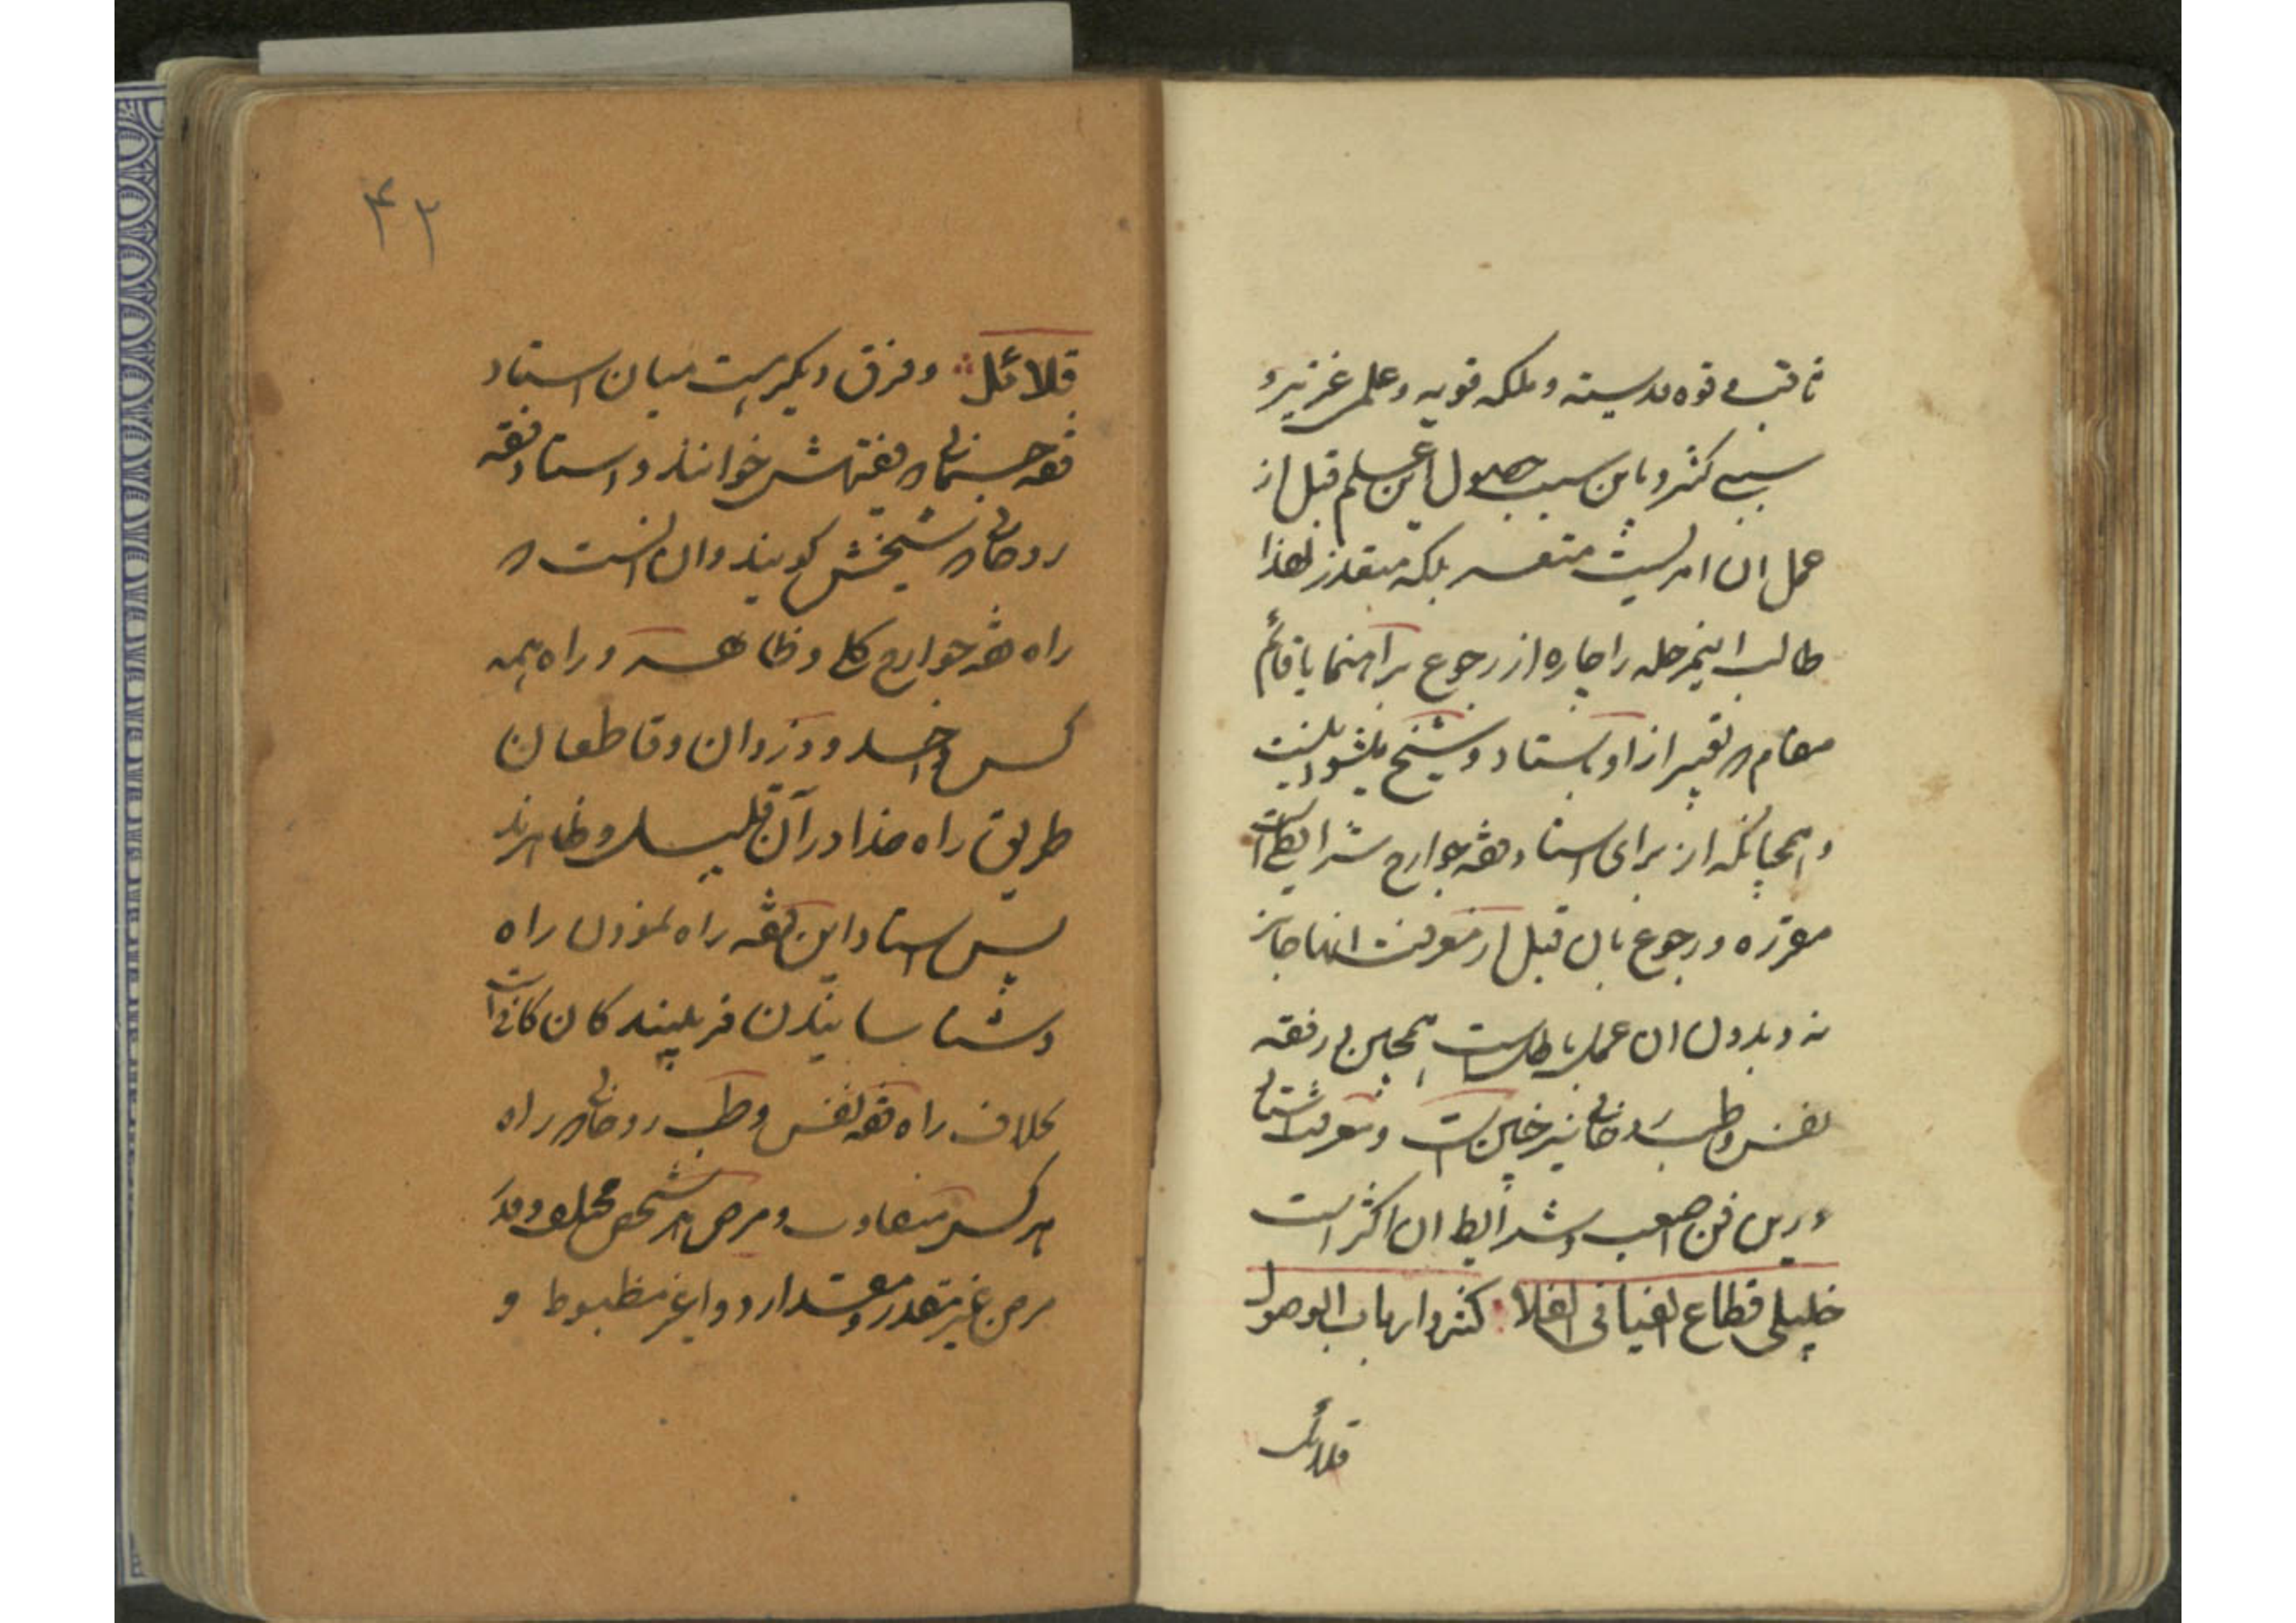 ثاقب و قوه قدسیته و ملکه قویه و علمی غزیر و
سببی کثیر و باین سبب حصول این علم قبل از
عمل ان امریست متعسر بلکه متعذر لهذا
طالب اینمرحله را چاره از رجوع براهنما یا قائم
مقام تعبیر از او باستاد و شیخ میشود نیست
و همچنانکه از برای استاد فقه جوارح شرایطی است
مقرره و رجوع بان قبل از معرفت انها جایز
نه و بدون ان عمل باطلست همچنین در فقه
نفس و طب روحانی نیز چنین است و معرفت استاد
درین فن اصعب و شرایط ان اکثر است
خلیلی قطاع الفیافی الفلا کثیر و ارباب الوصول
قلائل
۴۲
قلائل و فرق دیگریست میان استاد
فقه جسمانی که فقیهش خوانند و استاد فقه
روحانی که شیخش گویند و ان انست که
راه فقه جوارح کلا و ظاهر و راه همه
کس واحد و دزدان و قاطعان
طریق راه خدا در آن قلیل و ظاهرند
پس استاد این فقه راه نمودن راه
و شناسانیدن فریبندکان کافی است
بخلاف راه فقه نفس و طب روحانی که راه
هر کس متفاوت و مرض هر شخص مختلف و قدر
مرض غیر متقدر و مقدار دوا غیر مظبوط و